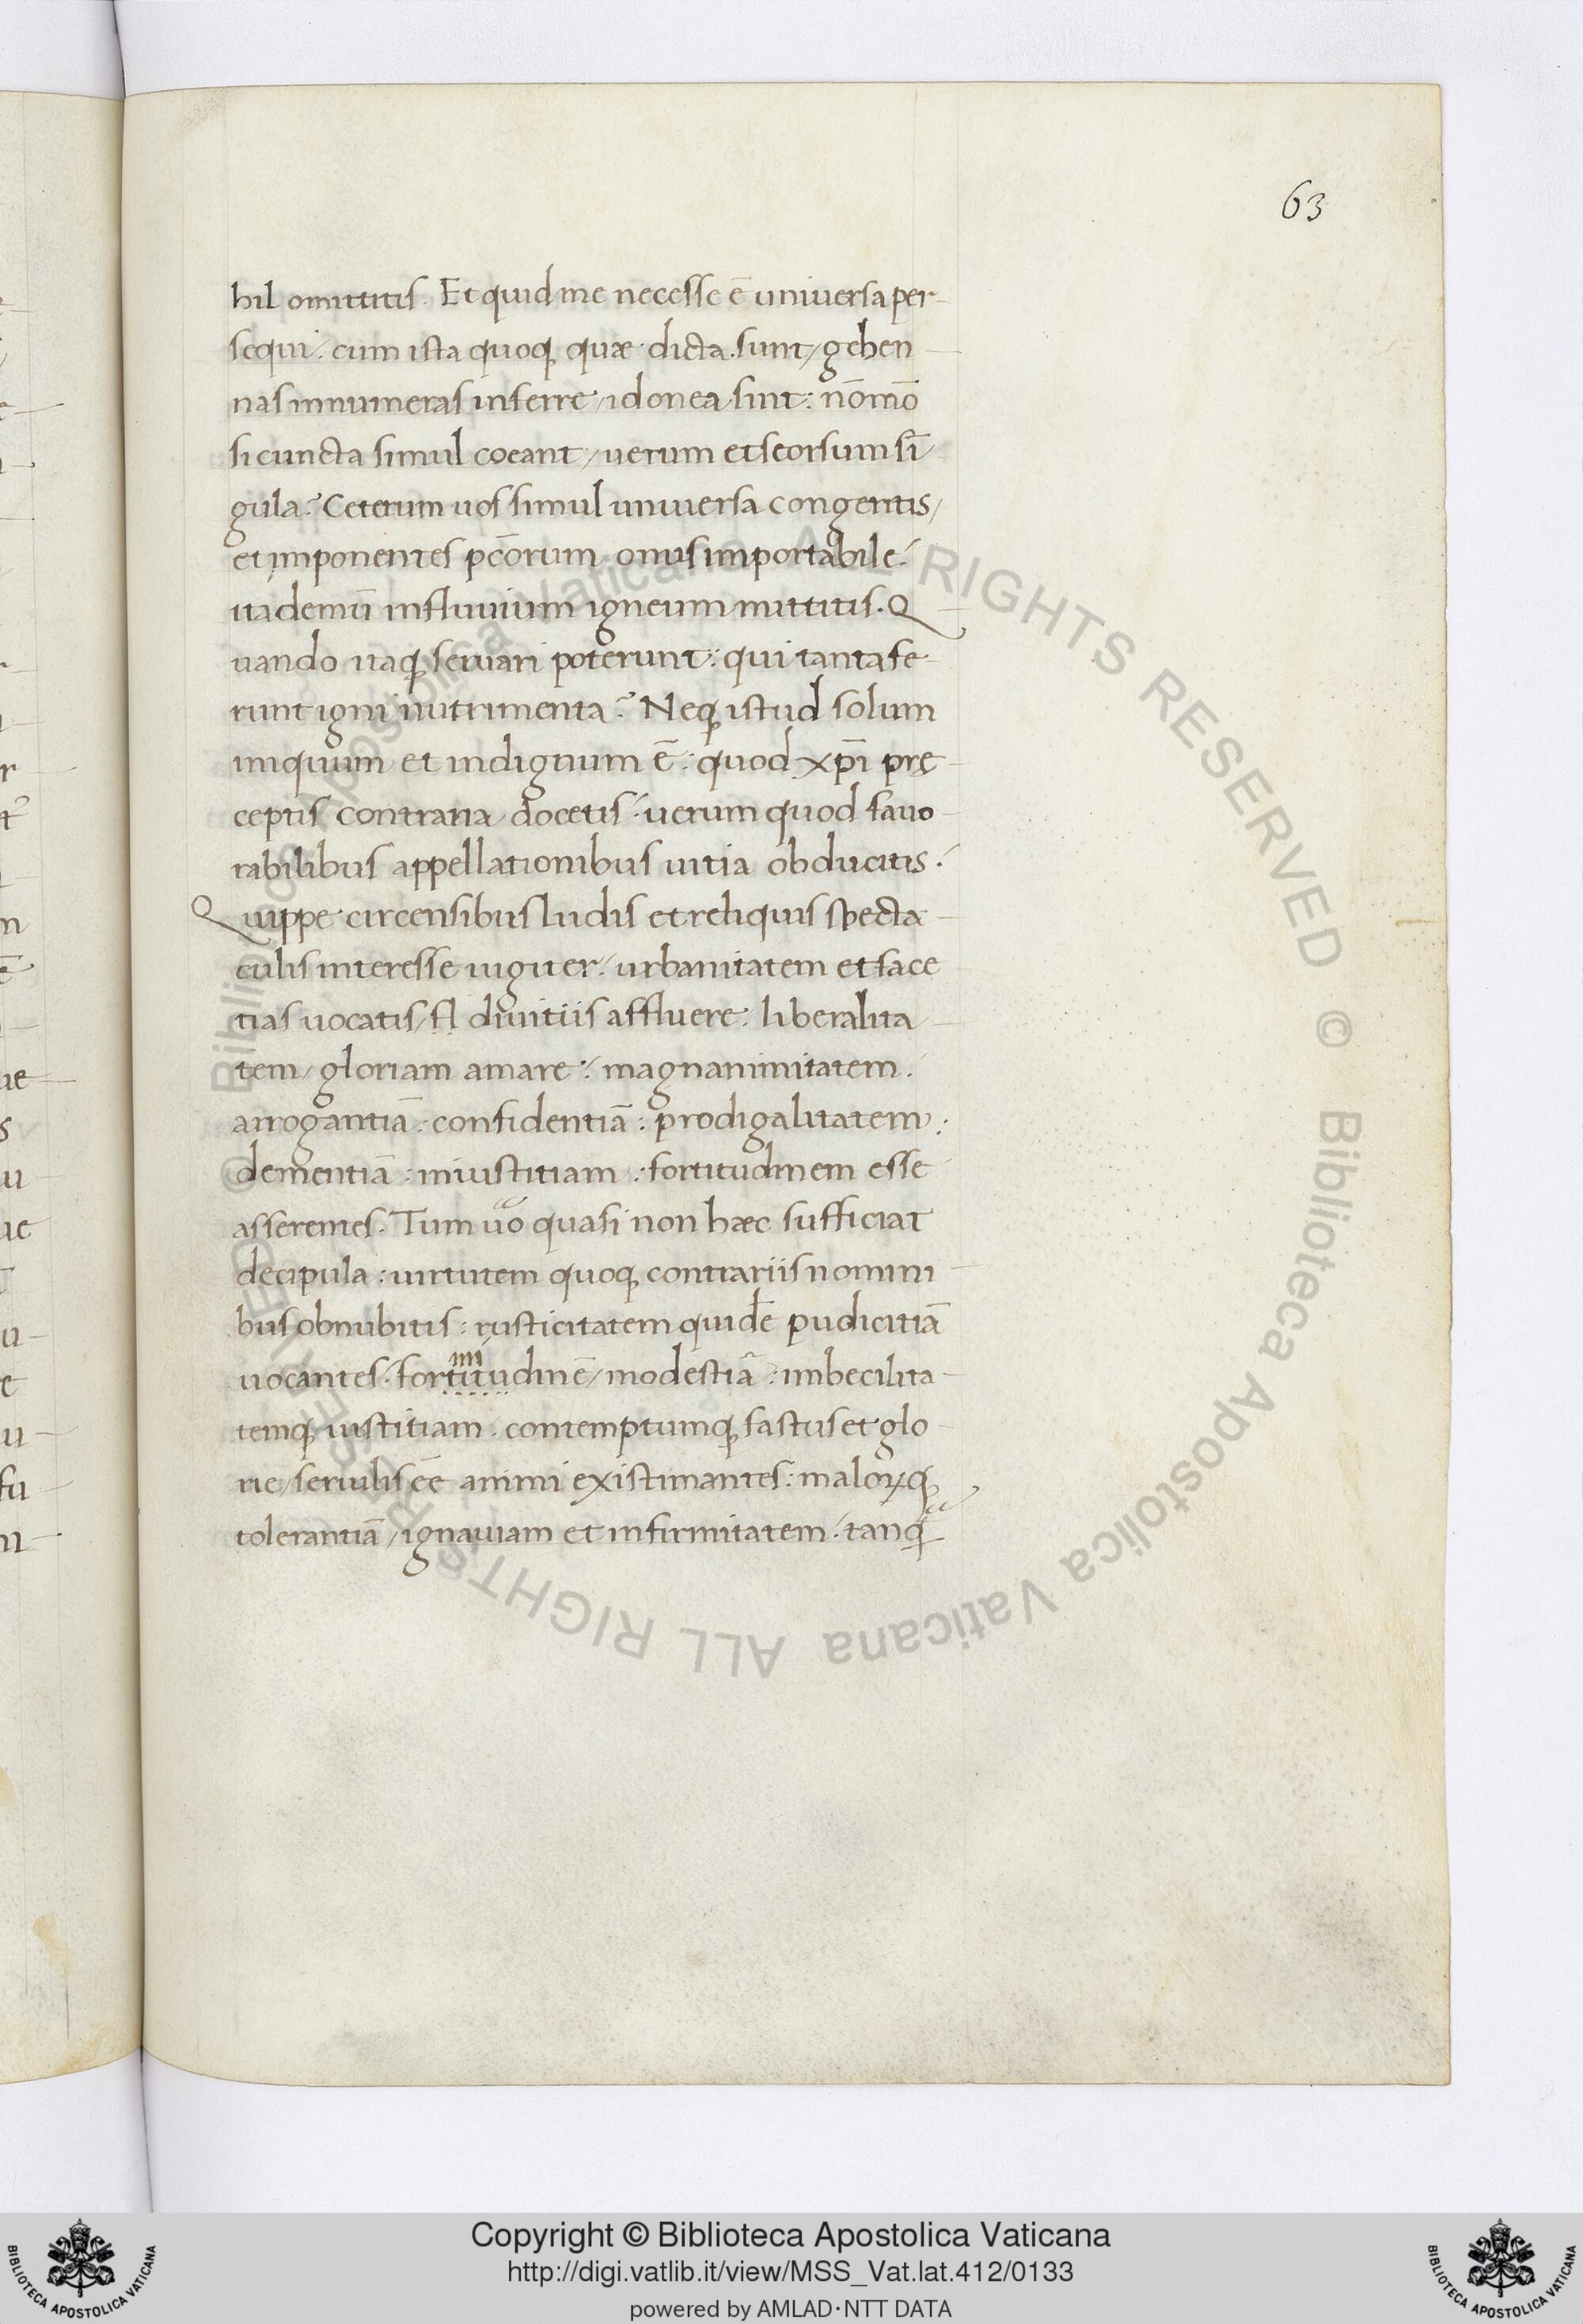 63
hil omittitis. Et quid me necesse ē universa per-
sequi: cum ista quoq; quæ dicta sunt/ gehen
nas innumeras inferre/ idonea sint: nō mō
si cuncta simul coeant/ uerum et seorsum sī
gula? Ceterum uos simul universa congentis/
et imponentes pc̄orum onus importabile:
ita demū in fluvium igneum mittitis. Q
uando itaq; seruari poterunt: qui tanta fe-
runt igni nutrimenta? Neq; istud solum
iniquum et indignum ē: quod xp̄i prę
ceptis contraria docetis: uerum quod favo
rabilibus appellationibus uitia obducitis:
Quippe circensibus ludis et reliquis specta
culis interesse iugiter: urbanitatem et face
tias uocatis/ fl divitiis affluere: liberalita
tem/ gloriam amare: magnanimitatem:
arrogantiā: confidentiā: prodigalitatem:
dementiā: iniustitiam: fortitudinem esse
asserentes. Tum uo quasi non hæc sufficiat
decipula: uirtutem quoq; contrariis nomini
bus obnubitis: rusticitatem quidē pudicitiā
uocantes: fortitudinē/ modestiā: imbecilita-
temq; iustitiam: contemptumq; fastus et glo
rie/ seruilis ēe animi existimantes: malorꝝq;
tolerantiā/ ignauiam et infirmitatem: tanq
© Biblioteca Apostolica Vaticana ALL RIGHTS RESERVED © Biblioteca Apostolica Vaticana ALL RIGHTS RESERVED
Copyright © Biblioteca Apostolica Vaticana
http://digi.vatlib.it/view/MSS_Vat.lat.412/0133
powered by AMLAD·NTT DATA
BIBLIOTECA APOSTOLICA VATICANA
BIBLIOTECA APOSTOLICA VATICANA